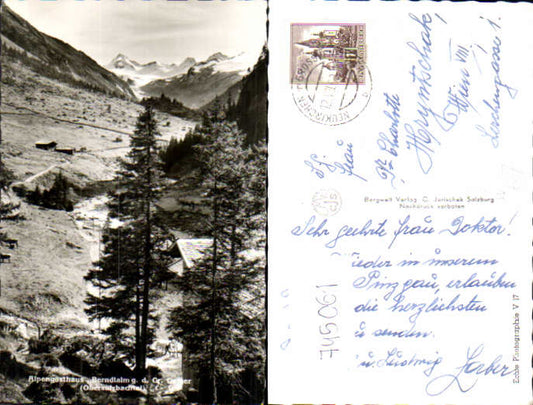 Alpengasthaus Berndlalm g. d. Gr. Geiger
(Obersulzbachtal)
NEUKIRCHEN
Frau
Dr. Charlotte
Hryntschak,
Wien VIII
Lerchengasse 1.
Bergwelt Verlag C. Jurischek Salzburg
Nachdruck verboten
Sehr geehrte Frau Doktor!
in unserem
Pinzgau, erlauben
die herzlichsten
zu senden.
u. Ludwig
745061
Echte Photographie V 17